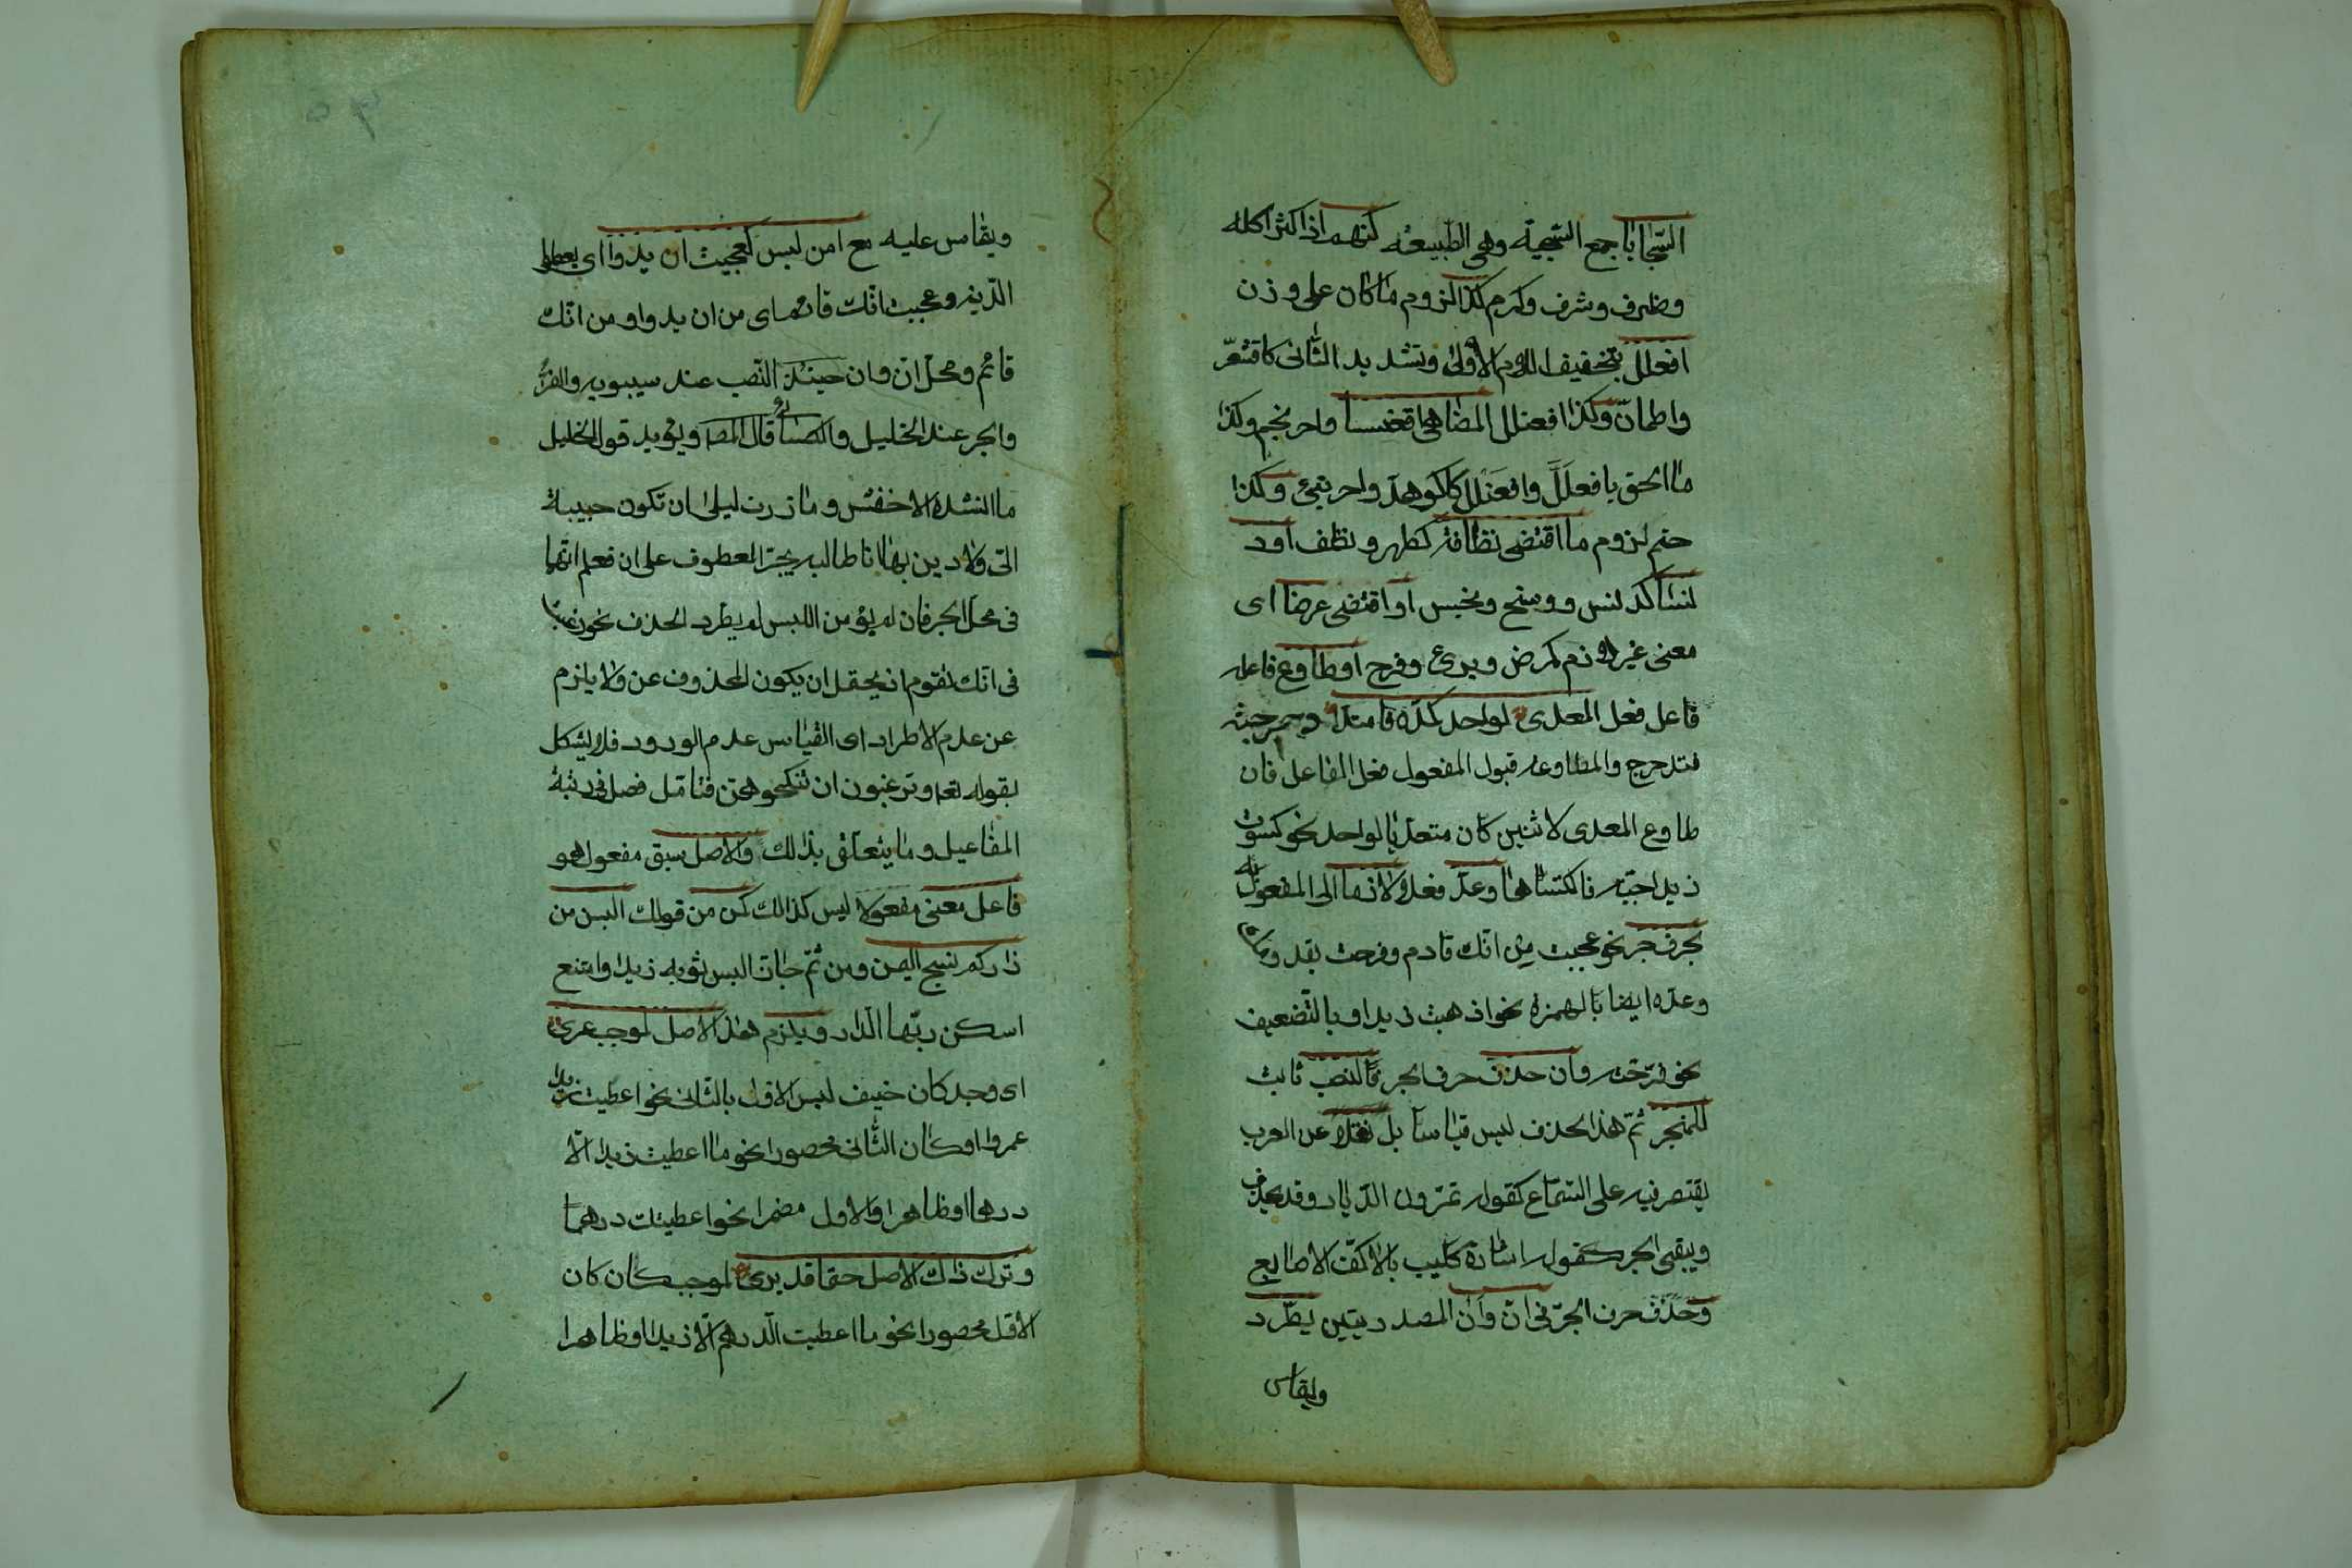 السّجايا جمع السّجيّة وهي الطّبيعة كنهم اذا كثر اكله
وظرف وشرف وكرم كذا لزوم ما كان على وزن
افعللّ بتخفيف اللام الاولى وتشديد الثّانى كاقشعرّ
واطمانّ وكذا افعنلل المضاهى اقعنسسا واحرنجم وكذا
ما الحق بافعلَلَّ وافعَنْلل كاكوهدّ واحرنبئ وكذا
حتم لزوم ما اقتضى نظافة كطهر ونظف او د
نسا كدنس ووسخ ونجس او اقتضى عرضا اى
معنى غير لازم كمرض وبرئ وفرح او طاوع فاعله
فاعل فعل المعدى لواحد كمدّه فامتدا ودحرجته
فتدحرج والمطاوعة قبول المفعول فعل الفاعل فان
طاوع المعدى لاثنين كان متعدّيا لواحد نحو كسوت
زيدا جبّة فاكتساها وعدّ فعلا لازما الى المفعول به
بحرف جر نحو عجبت من انّك قادم وفرحت بقدومك
وعدّه ايضا بالهمزة نحو اذهبت زيدا او بالتّضعيف
نحو فرّحته وان حذف حرف الجر فالنصب ثابت
للمنجر ثمّ هذا الحذف ليس قياسا بل نقلا عن العرب
يقتصر فيه على السّماع كقوله تمرّون الدّيار وقد يحذف
ويبقى الجر كقوله اشارة كليب بالاكفّ الاصابع
وحذف حرف الجرّ فى انّ وان المصدريتين يطّرد
ويقاس
ويقاس عليه مع امن لبس كعجبت ان يدوا اى يعطوا
الدّية وعجبت انّك قائم اى من ان يدوا ومن انّك
قائم ومحلّ انّ وان حينئذ النّصب عند سيبويه والفرّاء
والجر عند الخليل والكسائى قال المصـ ويؤيد قول الخليل
ما انشده الاخفش وما زرت ليلى ان تكون حبيبة
الىّ ولا دين بها انا طالبه بجرّ المعطوف على ان فعلم انّها
فى محلّ الجر فان لم يؤمن اللبس لم يطّرد الحذف نحو رغبت
فى انّك تقوم اذ يحتمل ان يكون المحذوف عن ولا يلزم
عن عدم الاطراد اى القياس عدم الورود فلا يشكل
بقوله تعـ وترغبون ان تنكحوهنّ فتامّل فصل فى رتبة
المفاعيل وما يتعلّق بذلك والاصل سبق مفعول هو
فاعل معنى مفعولا ليس كذالك كمن من قولك البسن من
زاركم نسج اليمن ومن ثمّ جاز البس ثوبه زيدا وامتنع
اسكن ربّها الدّار ويلزم هذا الاصل لموجب عرى
اى وجد كان خيف لبس الاوّل بالثّانى نحو اعطيت زيدا
عمروا او كان الثّانى محصورا نحو ما اعطيت زيدا الّا
درهما او ظاهرا والاول مضمرا نحو اعطيتك درهما
وترك ذاك الاصل حتما قد يرى لموجب كان كان
الاوّل محصورا نحو ما اعطيت الدّرهم الّا زيدا او ظاهرا